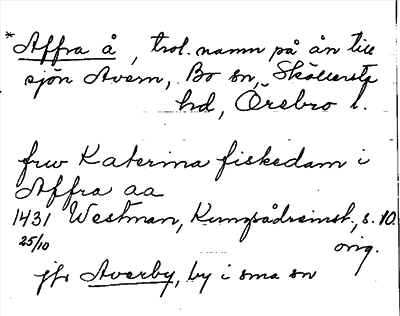 * Affra å, trol. namn på ån till
sjön Avern, Bo sn, Skyllersta
hd, Örebro l.
frw Katerina fiskedam i
Affra aa
1431 Westman, Kungsådreinst., s. 10
25/10 orig.
jfr Averby, by i sma sn